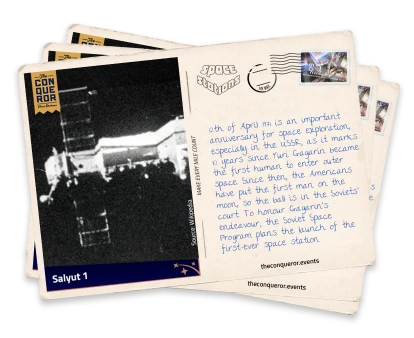 The
CONQUEROR
MAKE EVERY MILE COUNT
Source: Wikipedia
Salyut 1
SPACE
STATIONS
12th of April 1971 is an important
anniversary for space exploration,
especially in the USSR, as it marks
10 years since Yuri Gagarin became
the first human to enter outer
space. Since then, the Americans
have put the first man on the
moon, so the ball is in the Soviets'
court. To honour Gagarin's
endeavour, the Soviet Space
Program plans the launch of the
first-ever space station.
theconqueror.events
theconqueror.events